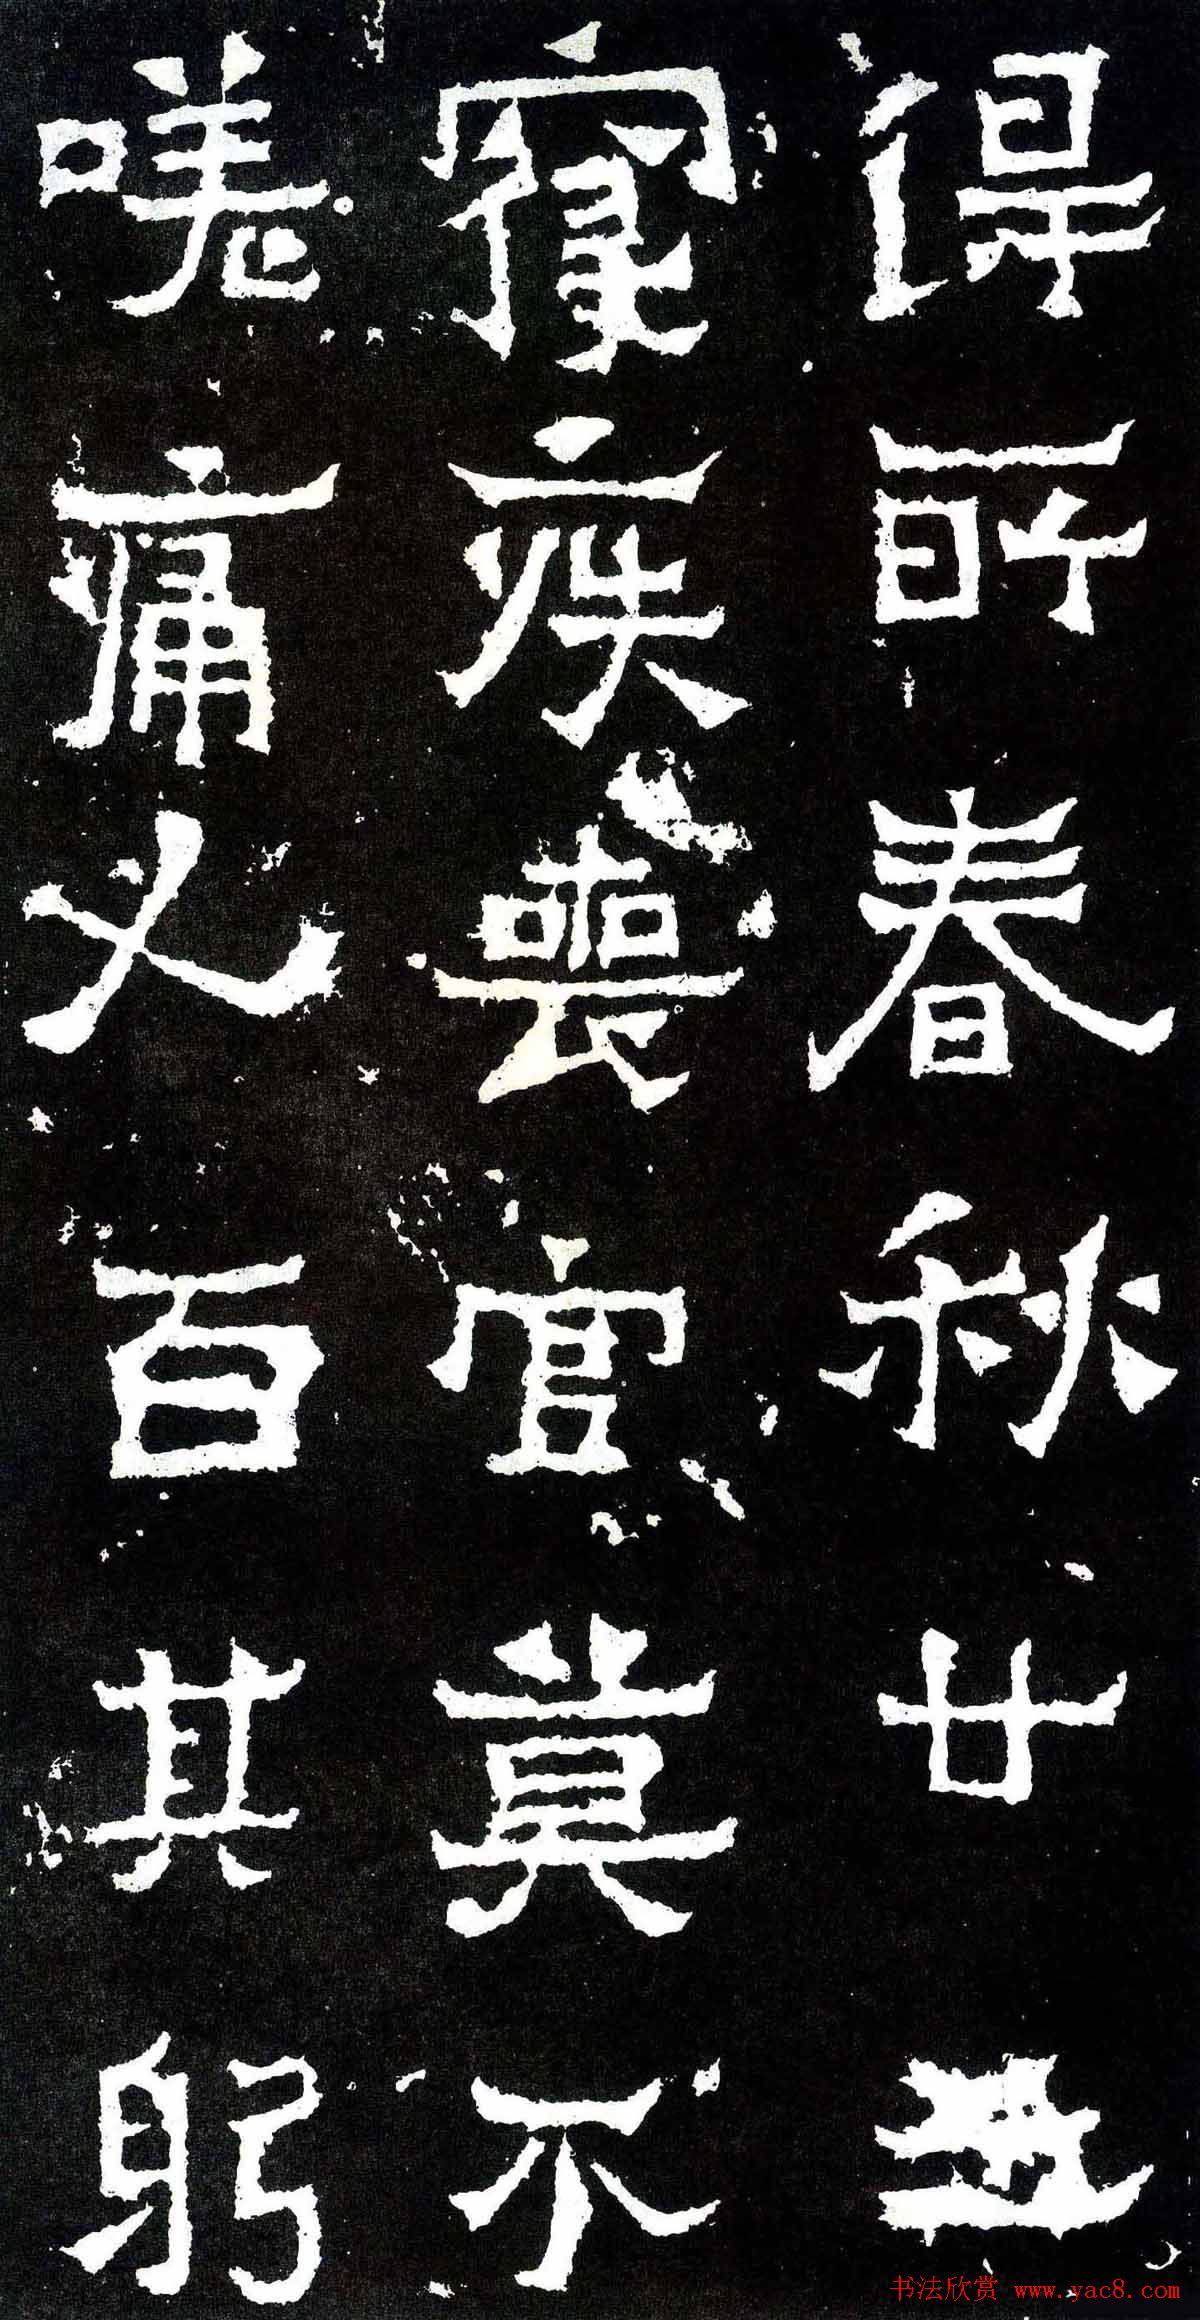 得所春秋廿
寑疾喪官莫不
嗟痛人百其躬
书法欣赏 www.yac8.com